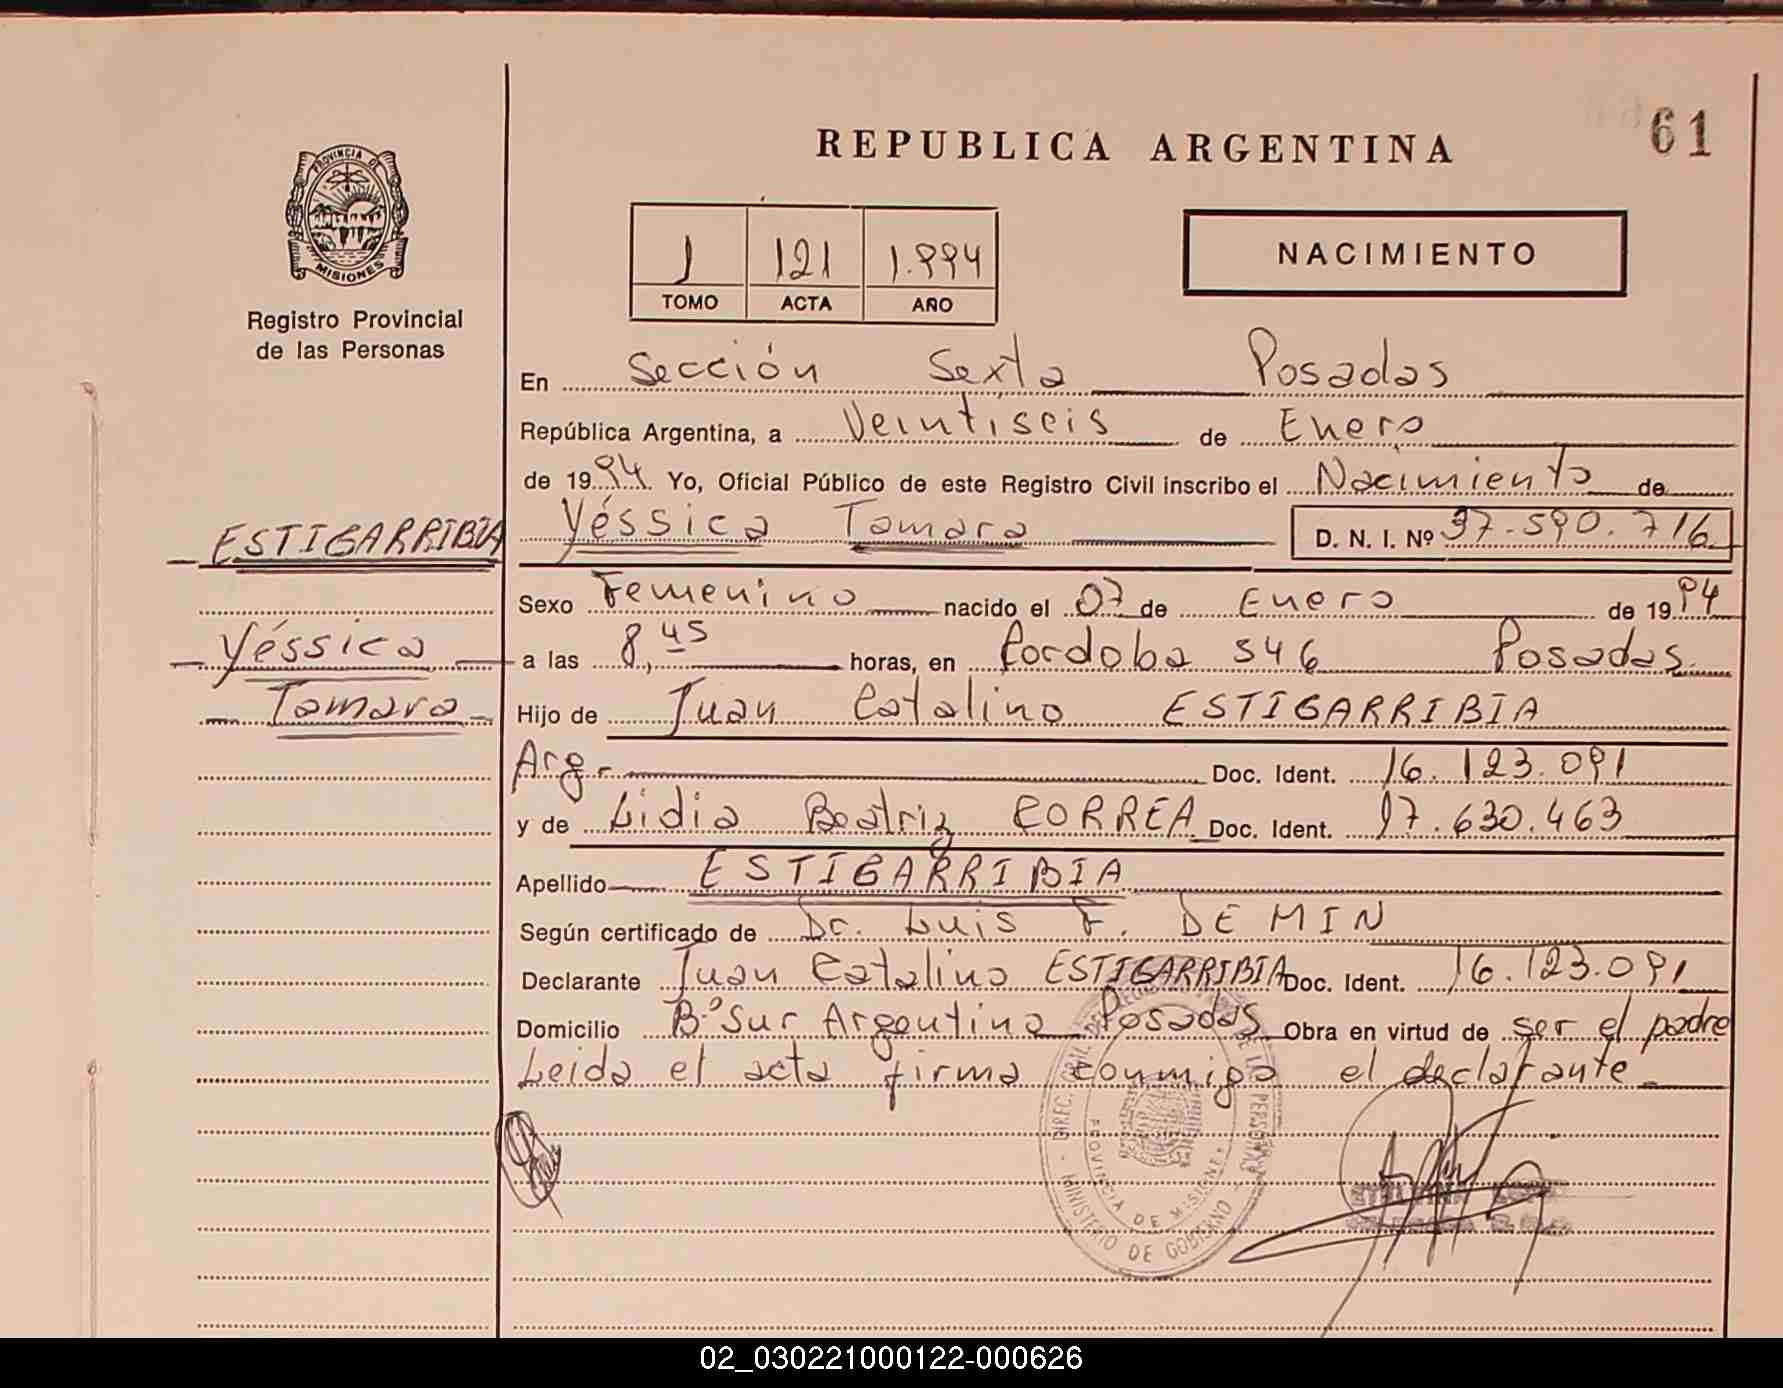 61
REPUBLICA ARGENTINA
PROVINCIA DE
MISIONES
Registro Provincial
de las Personas
1 121 1.994
TOMO ACTA AÑO
NACIMIENTO
En Sección Sexta Posadas
República Argentina, a Veintiseis de Enero
de 1994. Yo, Oficial Público de este Registro Civil inscribo el Nacimiento de
ESTIGARRIBIA
Yéssica Tamara D. N. I. Nº 37.590.716
Sexo Femenino nacido el 07 de Enero de 1994
Yéssica
a las 8,45 horas, en Cordoba 546 Posadas.
Tamara
Hijo de Juan Catalino ESTIGARRIBIA
Arg. Doc. Ident. 16.123.091
y de Lidia Beatriz CORREA Doc. Ident. 17.630.463
Apellido ESTIGARRIBIA
Según certificado de Dr. Luis F. DE MIN
Declarante Juan Catalino ESTIGARRIBIA Doc. Ident. 16.123.091
Domicilio Bº Sur Argentino Posadas Obra en virtud de ser el padre
Leida el acta firma conmigo el declarante.
PROVINCIA DE MISIONES
MINISTERIO DE GOBIERNO
02_030221000122-000626